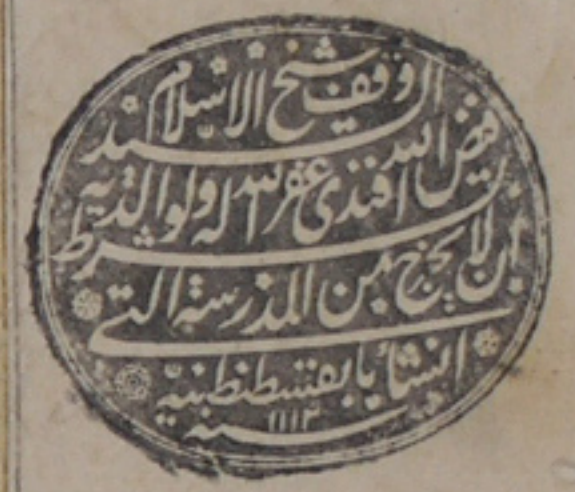 وقف شيخ الاسلام السيد
فيض الله افندى غفر الله له ولوالديه بشرط
ان لا يخرج من المدرسة التى
انشأها بقسطنطنية
سنة ١١١٣